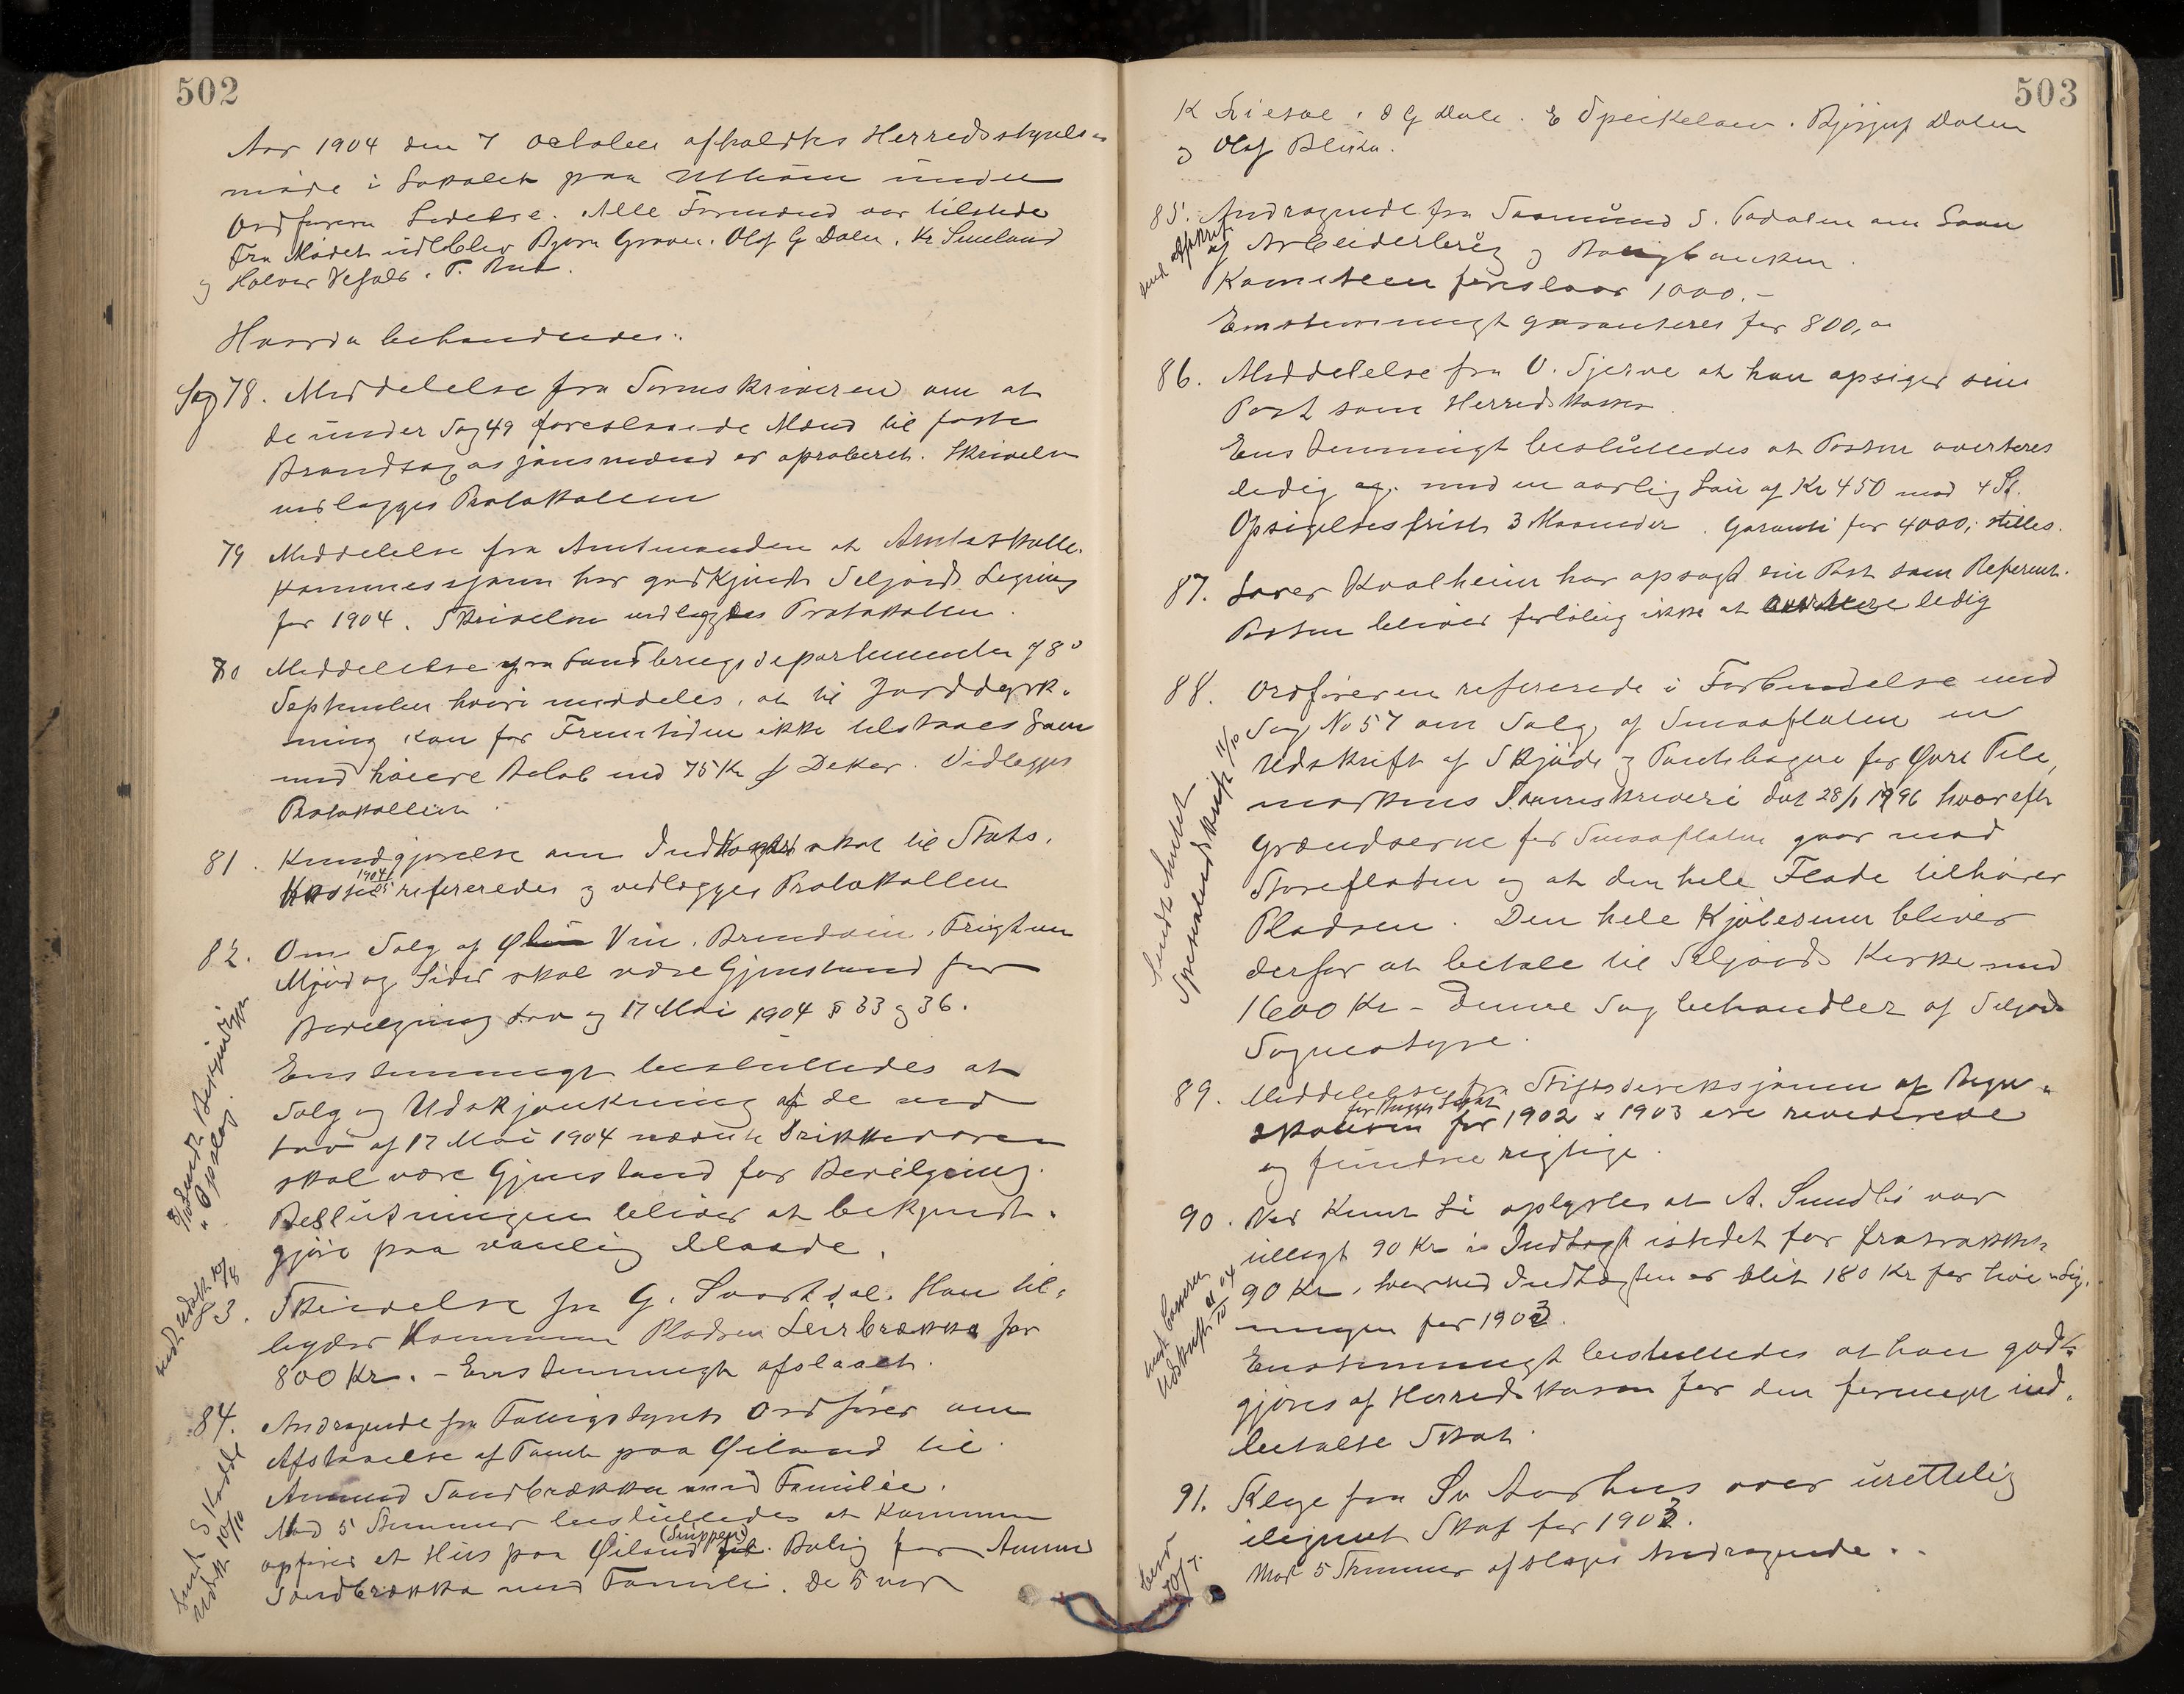 502
Aar 1904 den 7 october afholdtes Herredsstyrels-
møde i Lokalet paa Utheim under
Ordførern Ledelse. Alle Formænd var tilstede
Fra Mødet udeblev Bjørn Graver. Olaf G Dalen. Kr Smeland
og Halvor T.
Hvorda behandledes:
Sag 78. Meddelelse fra Sorenskriveren om at
de under Sag 49 foreslaaede Mænd til faste
Brandtagasjonsmænd er aproberet. Skrivelsen
vedlægges Protokollen
79 Meddelelse fra Amtmanden at Amtsskatte-
kommissjonen har godkjendt Seljords Ligning
for 1904. Skrivelsen vedlægges Protokollen.
80 Meddelelse fra Landbrugsdepartementet af 8de
September hvori meddeles, at til Jorddyrk-
ning kan for Fremtiden ikke tilstaaes Laan
med høiere Beløb end 75 Kr pr Dekar. Vedlægges
Protokollen.
81. Kundgjørelse om Indtægtsskat til Stats-
kassen 1904/05 refereredes og vedlægges Protokollen
82. Om Salg af Øl Vin, Brændevin, Frugtvin
Mjød og Sider skal være Gjenstand for
Bevilgning Lov af 17 Mai 1904 § 33 og 36.
Enstemmigt besluttedes at
Salg og Udskjænkning af de ved
Lov af 17 Mai 1904 nævnte Drikkevarer
skal være Gjenstand for Bevilgning.
Beslutningen bliver at bekjendt-
gjøre paa vanlig Maade.
83. Skrivelse fra G. Svartdal. Han til-
byder Kommunen Pladsen Leirbrække for
800 Kr. – Enstemmigt afslaaet.
84. Andragende fra Fattigstyrets Ordfører om
Afstaaelse af Tomt paa Øiland til
Aamund Sandbrække med Familie.
Mod 5 Stemmer besluttedes at Kommunen
opfører et Hus paa Øiland (Snippen) Bolig for Aamund
Sandbrække med Familie. De 5 var
Sendt Skodde
Udskr 10/10
503
K Liesve, O G Dale. E Speikeland. Bjørguf Dalen
og Olaf Blika.
85. Andragende fra Saamund S. Tadalen om Laan
af Arbeiderbrug og Boligbanken.
Komiteen foreslaar 1000.–
Enstemmigt garanteres for 800,00
86. Meddelelse fra O. Sjerve at han opsiger sin
Post som Herredskasser.
Enstemmigt besluttedes at Posten averteres
ledig og. med en aarlig Løn af Kr 450 mod
Opsigelsesfrist 3 Maaneder. Garanti for 4000,- stilles.
87. Lærer Kvalheim har opsagt sin Post som Referent.
Posten bliver forløbig ikke at avertere ledig
88. Ordføreren refererede i Forbindelse med
Sag No 57 om Salg af Smaaflaten en
Udskrift af Skjøde og Pantebogen for Øvre Tele-
markens Sorenskriveri dat 28/1 1796 hvorefter
Grændserne for Smaaflaten gaar mod
Storefladen og at den hele Flade tilhører
Pladsen. Den hele Kjøbesum bliver
derfor at betale til Seljords Kirke med
1600 Kr – Denne Sag behandler af Seljord
Sognestyre.
89. Meddelelse fra Stiftsdireksjonen at Regn-
skaberne for 1902 & 1903 ere reviderede
og fundne rigtige.
90. Ved Knut Li oplystes at A. Sundbø var
tillagt 90 Kr i Indtægt istedet for fratrække
90 Kr, hvorved Indtægten er blit 180 Kr for høi ved Lig-
ningen for 1903.
Enstemmigt besluttedes at han godt-
gjøres af Herredskassen for den formeget ind-
betalte Skat.
91. Klage fra Sv Aarhus over urettelig
ilignet Skat for 1903.
Mod 5 Stemmer afslages Andragende.